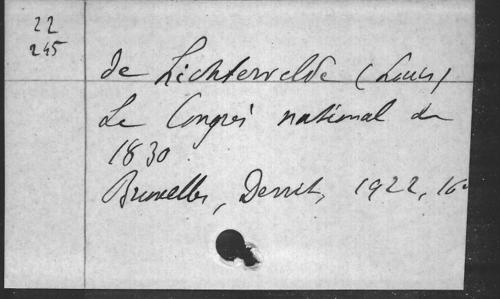 22
245
de Lichtervelde (Louis)
Le Congrès national de
1830
Bruxelles, 1922, 16º